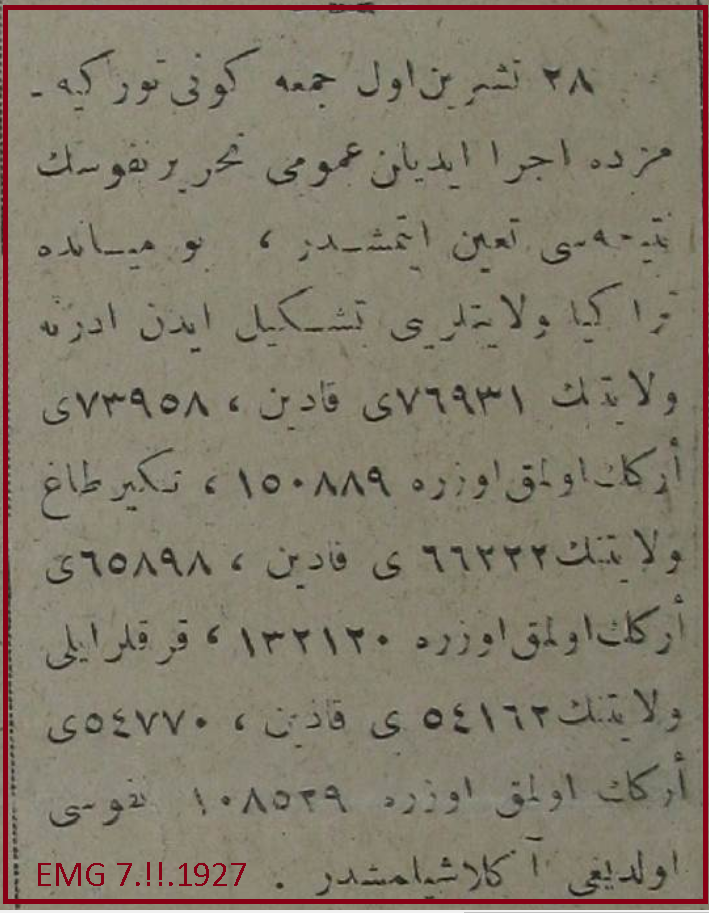 ٢٨ تشرين اول جمعه كونى توركيه ـ
مزده اجرا ايديلن عمومى تحرير نفوسك
نتيجه‌سى تعين ايتمشدر ، بو ميانده
تراكيا ولايتلرينى تشكيل ايدن ادرنه
ولايتنك ٧٦٩٣١ى قادين ، ٧٣٩٥٨ى
أركك اولمق اوزره ١٥٠٨٨٩ ، تكيرطاغ
ولايتنك ٦٦٢٢٢ ى قادين ، ٦٥٨٩٨ى
أركك اولمق اوزره ١٣٢١٢٠ ، قرقلرايلى
ولايتنك ٥٤١٦٢ ى قادين ، ٥٤٧٧٠ى
أركك اولمق اوزره ١٠٨٥٢٩ نفوسى
اولديغى آكلاشيلمشدر .
EMG 7.!!.1927